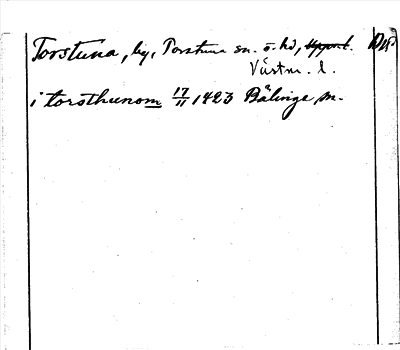 Torstuna, by, Torstuna sn. o. hd, Upps. l. DMS
Västm. l.
i torsthunom 17/11 1423 Bälinge sn.